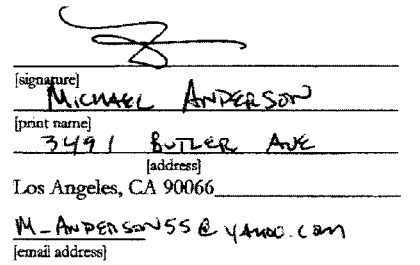 [signature]
MICHAEL ANDERSON
[print name]
3491 BUTLER AVE
[address]
Los Angeles, CA 90066
M-ANDERSON55@yahoo.com
[email address]